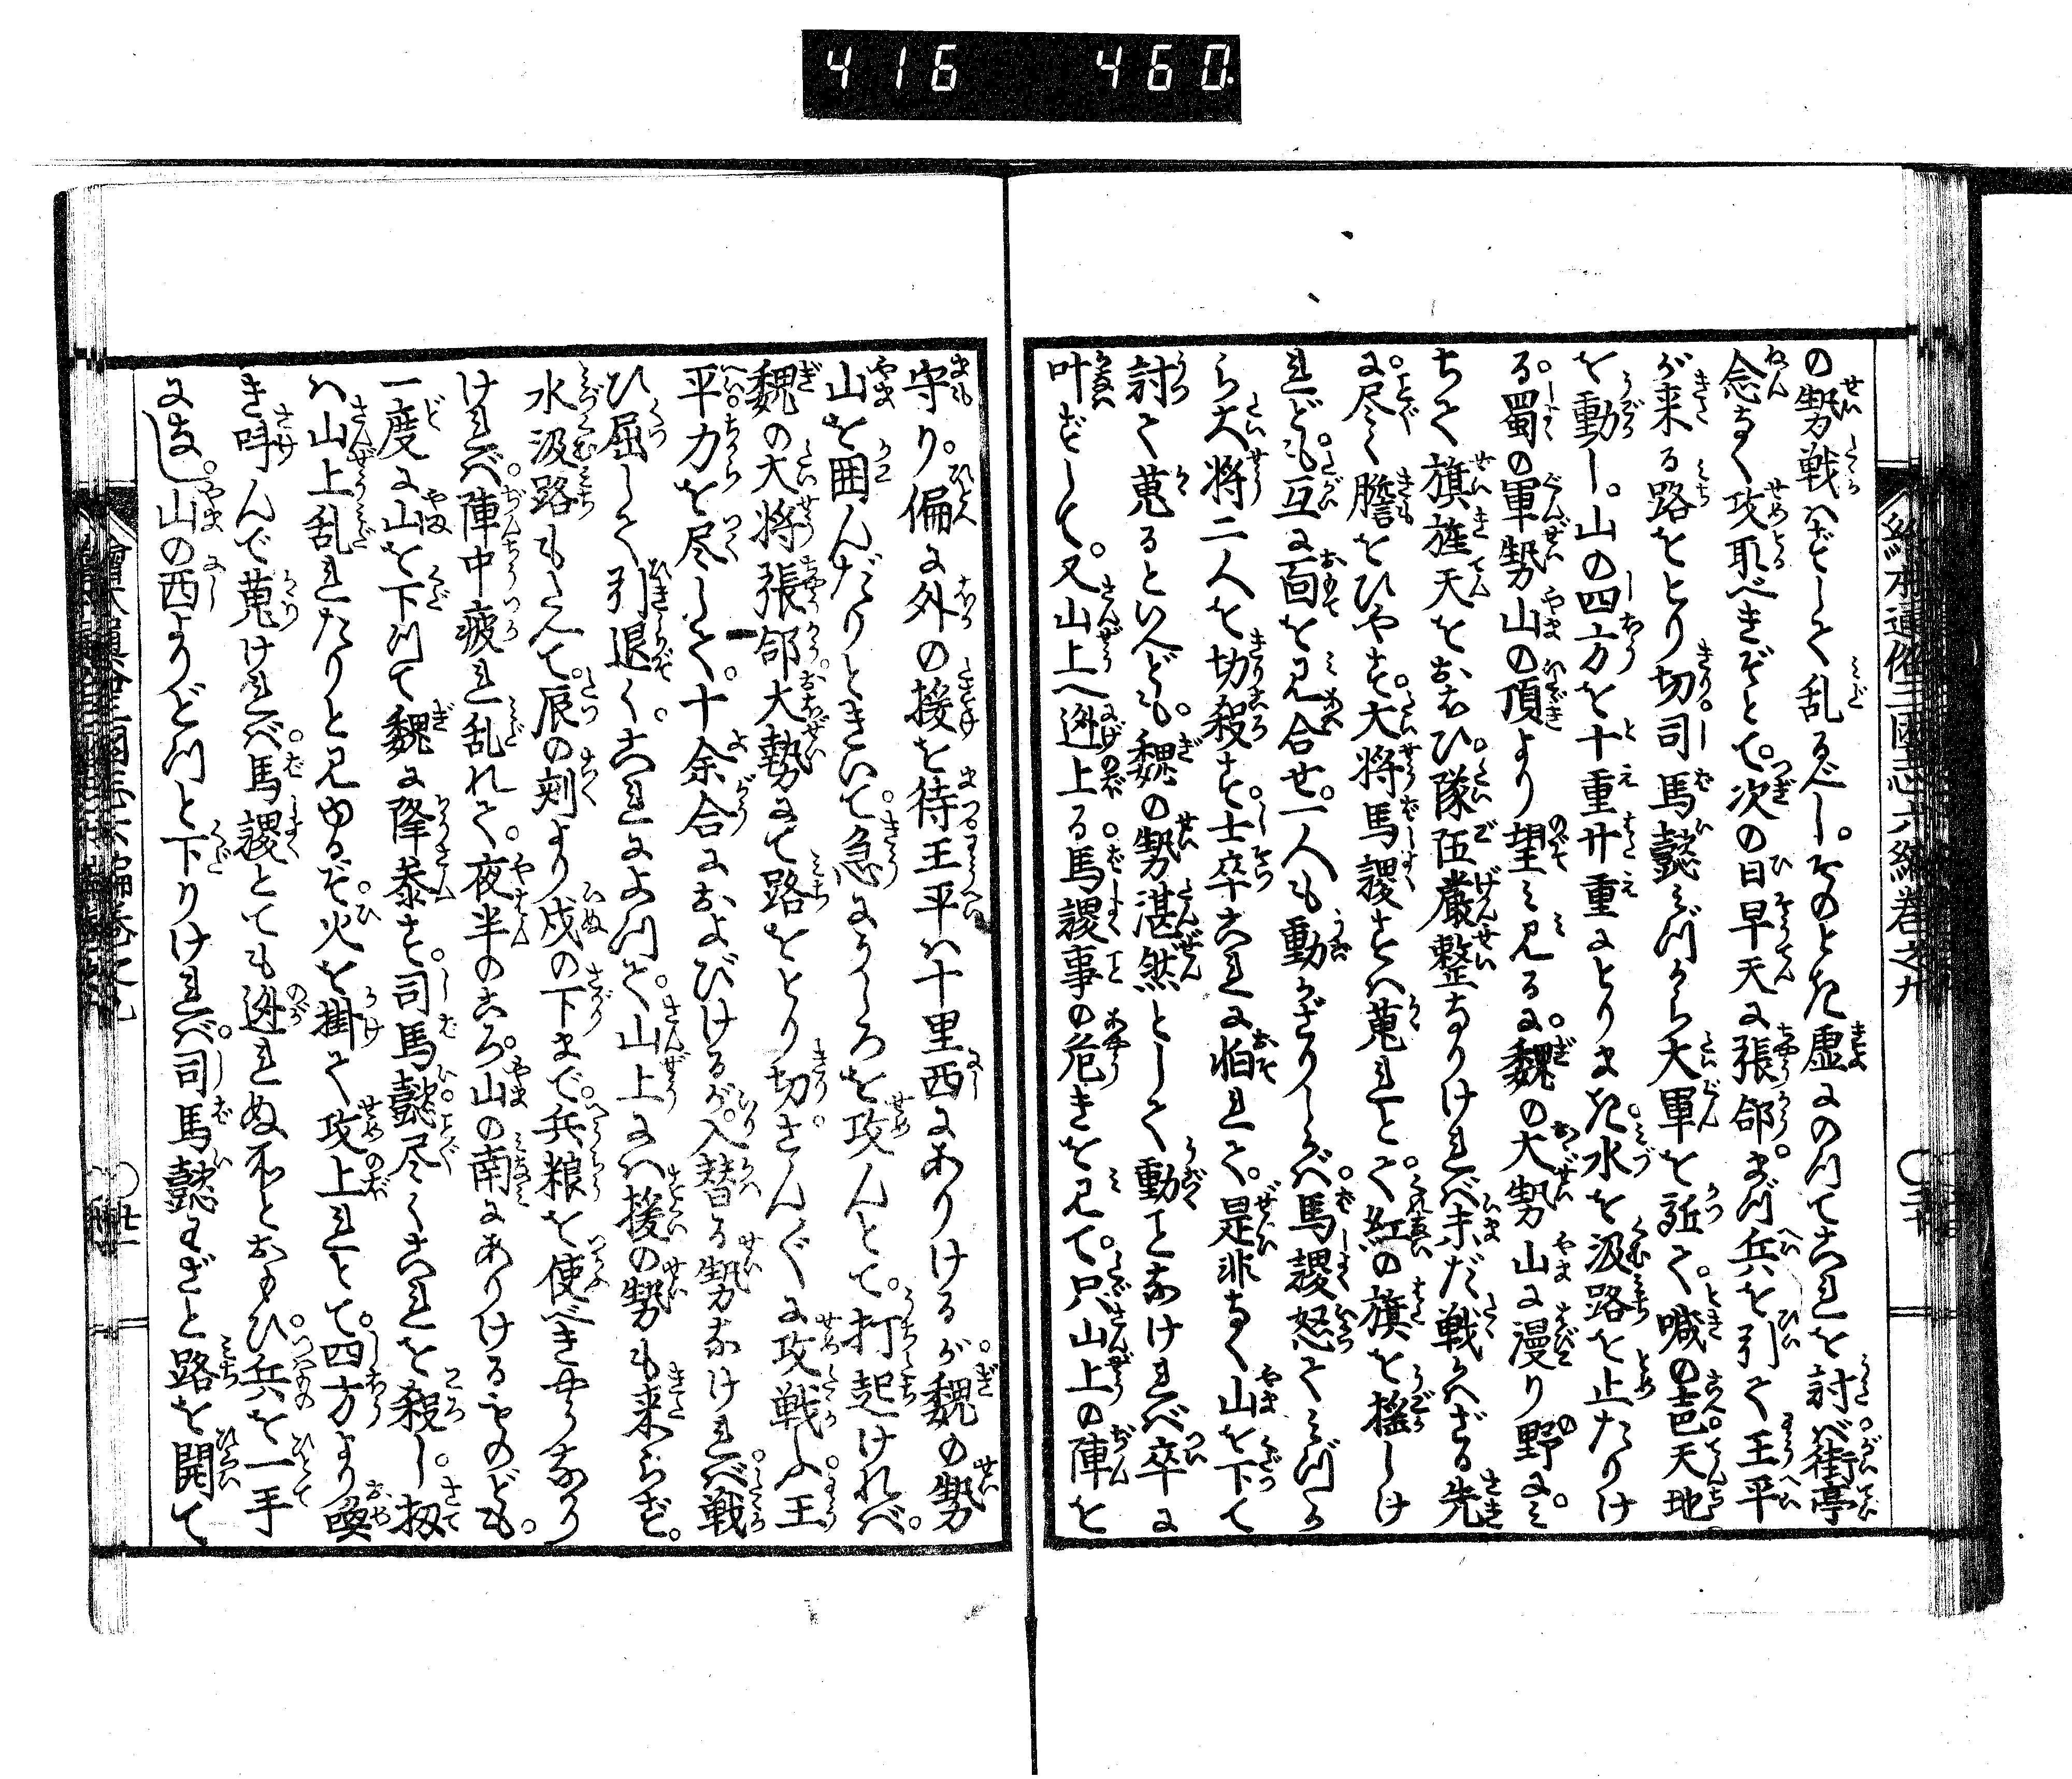 416 460
繪本通俗三國志六編巻之九 〇二十
の勢戦はずして乱るべし。そのとき虚にのつてこれを討ば街亭
念なく攻取べきぞとて。次の日早天に張郃。まづ兵を引て王平
が来る路をとり切司馬懿みづから大軍を証て。喊の声天地
を動し。山の四方を十重廿重にとりまき水を汲路を止たりけ
る。蜀の軍勢山の頂より望み見るに。魏の大勢山に漫り野に。み
ちて旗旌天をおおひ。隊伍厳整なりければ未だ戦はざる先
に。尽く膽をひやす。大将馬謖すは蒐れとて。紅の旗を揺しけ
れども。互に面を見合せ。一人も動かざりしかば。馬謖怒てみづか
ら大将二人を切殺す。士卒これに怕れて。是非なく山を下て
討て蒐るといへども。魏の勢湛然として動となければ卒に
叶ずして。又山上へ迯上る。馬謖事の危きを見て。只山上の陣を
守り。偏に外の援を待。王平は十里西にありけるが。魏の勢
山を囲んだりときいて。急にうしろを攻んとて。打起ければ。
魏の大将張郃。大勢にて路をとり切。さんざんに攻戦ふ。王
平。力を尽して。十余合におよびけるが。入替る勢なければ。戦
ひ屈して引退く。これによつて。山上には援の勢も来らず。
水汲路もたへて。辰の刻より戌の下まで。兵粮を使べきやうなか
ければ。陣中疲れ乱れて。夜半のころ。山の南にありけるものども。
一度に山を下つて魏に降参す。司馬懿。尽くこれを殺し。扨
は山上乱れたりと見ゆるぞ。火を掛て攻上れとて。四方より喚
き叫んで蒐ければ。馬謖とても迯れぬ所とおもひ。兵を一手
になし。山の西よりどつと下りければ。司馬懿わざと路を開て